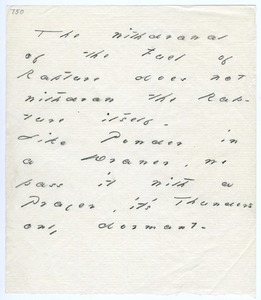 750
The withdrawal
of the Fuel of
Rapture does not
withdraw the Rap-
ture itself.
Like Powder in
a Drawer, we
pass it with a
Prayer, it's Thunders
only dormant.